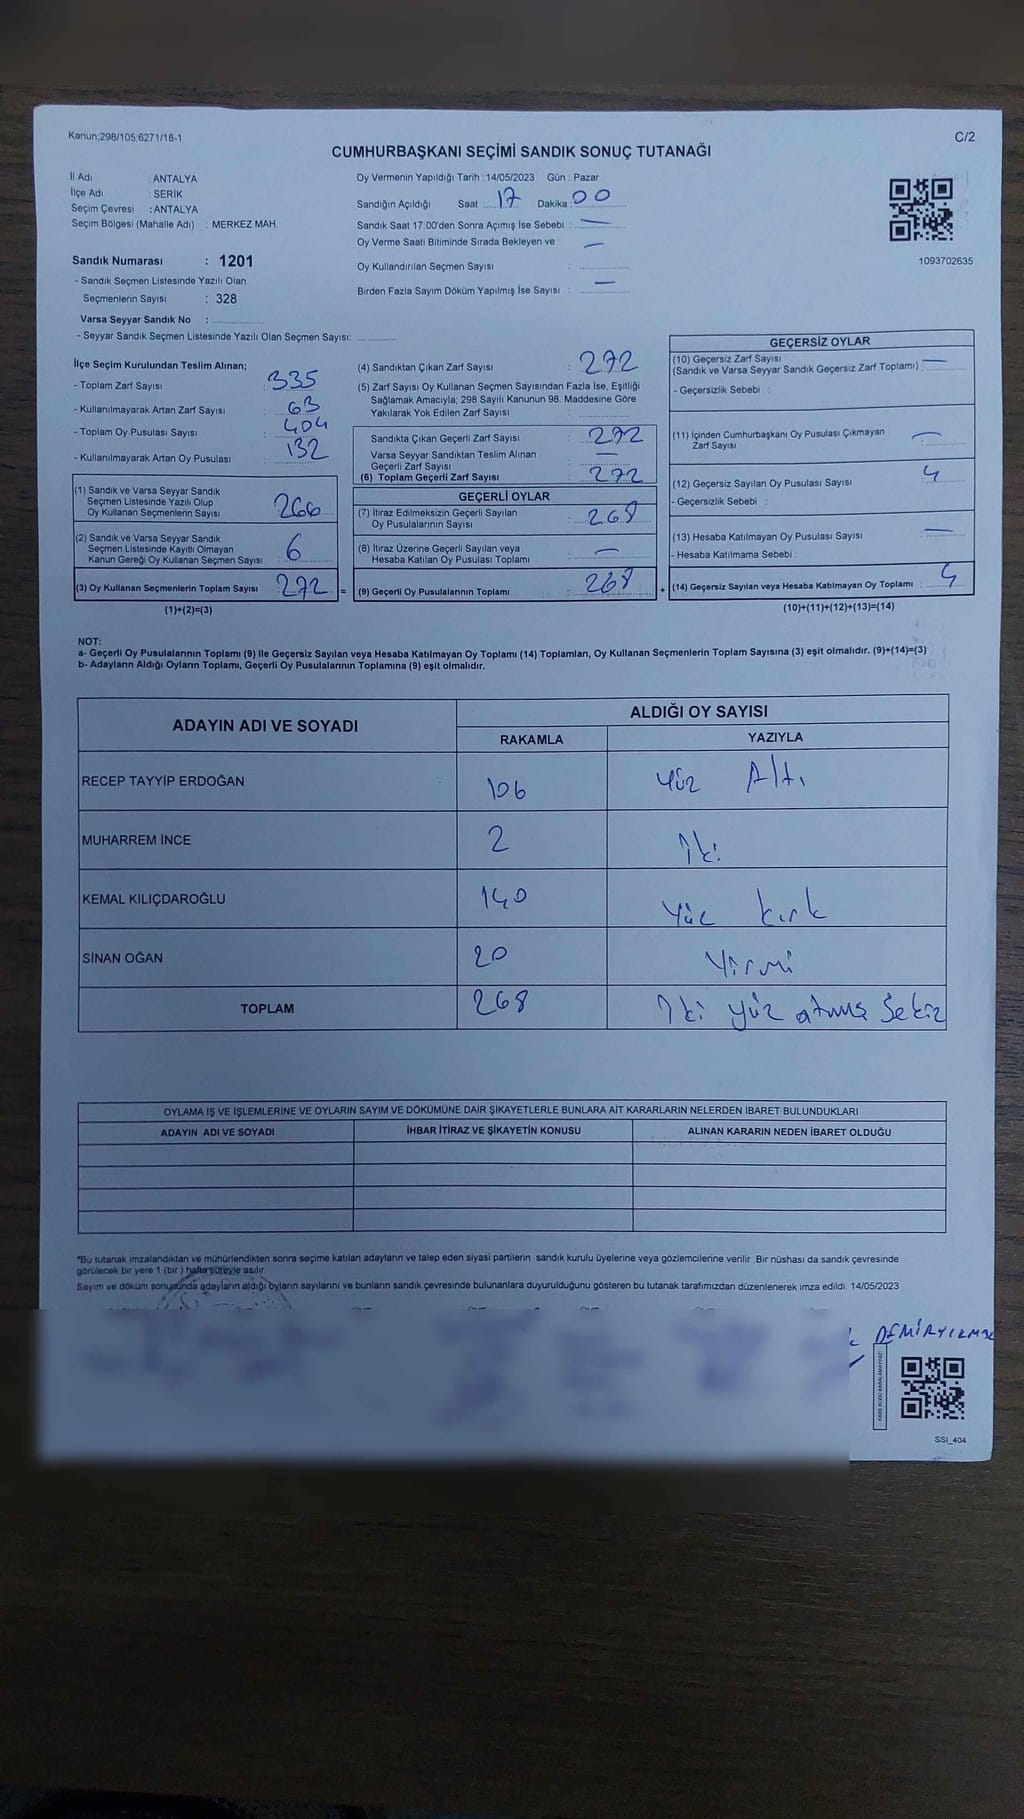 Kanun;298/105;6271/18-1
C/2
CUMHURBAŞKANI SEÇİMİ SANDIK SONUÇ TUTANAĞI
İl Adı : ANTALYA
İlçe Adı : SERİK
Seçim Çevresi : ANTALYA
Seçim Bölgesi (Mahalle Adı) : MERKEZ MAH.
Sandık Numarası : 1201
- Sandık Seçmen Listesinde Yazılı Olan
Seçmenlerin Sayısı : 328
Varsa Seyyar Sandık No :
- Seyyar Sandık Seçmen Listesinde Yazılı Olan Seçmen Sayısı:
Oy Vermenin Yapıldığı Tarih :14/05/2023 Gün : Pazar
Sandığın Açıldığı Saat : 17 Dakika : 00
Sandık Saat 17:00'den Sonra Açımış İse Sebebi : —
Oy Verme Saati Bitiminde Sırada Bekleyen ve —
Oy Kullandırılan Seçmen Sayısı :
Birden Fazla Sayım Döküm Yapılmış İse Sayısı : —
1093702635
İlçe Seçim Kurulundan Teslim Alınan;
- Toplam Zarf Sayısı : 335
- Kullanılmayarak Artan Zarf Sayısı : 63
- Toplam Oy Pusulası Sayısı : 404
- Kullanılmayarak Artan Oy Pusulası : 132
(1) Sandık ve Varsa Seyyar Sandık
Seçmen Listesinde Yazılı Olup
Oy Kullanan Seçmenlerin Sayısı : 266
(2) Sandık ve Varsa Seyyar Sandık
Seçmen Listesinde Kayıtlı Olmayan
Kanun Gereği Oy Kullanan Seçmen Sayısı : 6
(3) Oy Kullanan Seçmenlerin Toplam Sayısı : 272 =
(1)+(2)=(3)
(4) Sandıktan Çıkan Zarf Sayısı : 272
(5) Zarf Sayısı Oy Kullanan Seçmen Sayısından Fazla İse, Eşitliği
Sağlamak Amacıyla; 298 Sayılı Kanunun 98. Maddesine Göre
Yakılarak Yok Edilen Zarf Sayısı :
Sandıkta Çıkan Geçerli Zarf Sayısı : 272
Varsa Seyyar Sandıktan Teslim Alınan
Geçerli Zarf Sayısı : —
(6) Toplam Geçerli Zarf Sayısı : 272
GEÇERLİ OYLAR
(7) İtiraz Edilmeksizin Geçerli Sayılan
Oy Pusulalarının Sayısı : 268
(8) İtiraz Üzerine Geçerli Sayılan veya
Hesaba Katılan Oy Pusulası Toplamı : —
(9) Geçerli Oy Pusulalarının Toplamı : 268 +
GEÇERSİZ OYLAR
(10) Geçersiz Zarf Sayısı
(Sandık ve Varsa Seyyar Sandık Geçersiz Zarf Toplamı) : —
- Geçersizlik Sebebi :
(11) İçinden Cumhurbaşkanı Oy Pusulası Çıkmayan
Zarf Sayısı : —
(12) Geçersiz Sayılan Oy Pusulası Sayısı : 4
- Geçersizlik Sebebi :
(13) Hesaba Katılmayan Oy Pusulası Sayısı : —
- Hesaba Katılmama Sebebi :
(14) Geçersiz Sayılan veya Hesaba Katılmayan Oy Toplamı : 4
(10)+(11)+(12)+(13)=(14)
NOT:
a- Geçerli Oy Pusulalarının Toplamı (9) ile Geçersiz Sayılan veya Hesaba Katılmayan Oy Toplamı (14) Toplamları, Oy Kullanan Seçmenlerin Toplam Sayısına (3) eşit olmalıdır. (9)+(14)=(3)
b- Adayların Aldığı Oyların Toplamı, Geçerli Oy Pusulalarının Toplamına (9) eşit olmalıdır.
ADAYIN ADI VE SOYADI
ALDIĞI OY SAYISI
RAKAMLA YAZIYLA
RECEP TAYYİP ERDOĞAN 106 Yüz Altı
MUHARREM İNCE 2 İki
KEMAL KILIÇDAROĞLU 140 Yüz kırk
SİNAN OĞAN 20 Yirmi
TOPLAM 268 İki yüz atmış Sekiz
OYLAMA İŞ VE İŞLEMLERİNE VE OYLARIN SAYIM VE DÖKÜMÜNE DAİR ŞİKAYETLERLE BUNLARA AİT KARARLARIN NELERDEN İBARET BULUNDUKLARI
ADAYIN ADI VE SOYADI İHBAR İTİRAZ VE ŞİKAYETİN KONUSU ALINAN KARARIN NEDEN İBARET OLDUĞU
*Bu tutanak imzalandıktan ve mühürlendikten sonra seçime katılan adayların ve talep eden siyasi partilerin sandık kurulu üyelerine veya gözlemcilerine verilir. Bir nüshası da sandık çevresinde
görülecek bir yere 1 (bir ) hafta süreyle asılır.
Sayım ve döküm sonucunda adayların aldığı oyların sayılarını ve bunların sandık çevresinde bulunanlara duyurulduğunu gösteren bu tutanak tarafımızdan düzenlenerek imza edildi. 14/05/2023
KARE KODU KARALAMAYINIZ!
SSİ_404